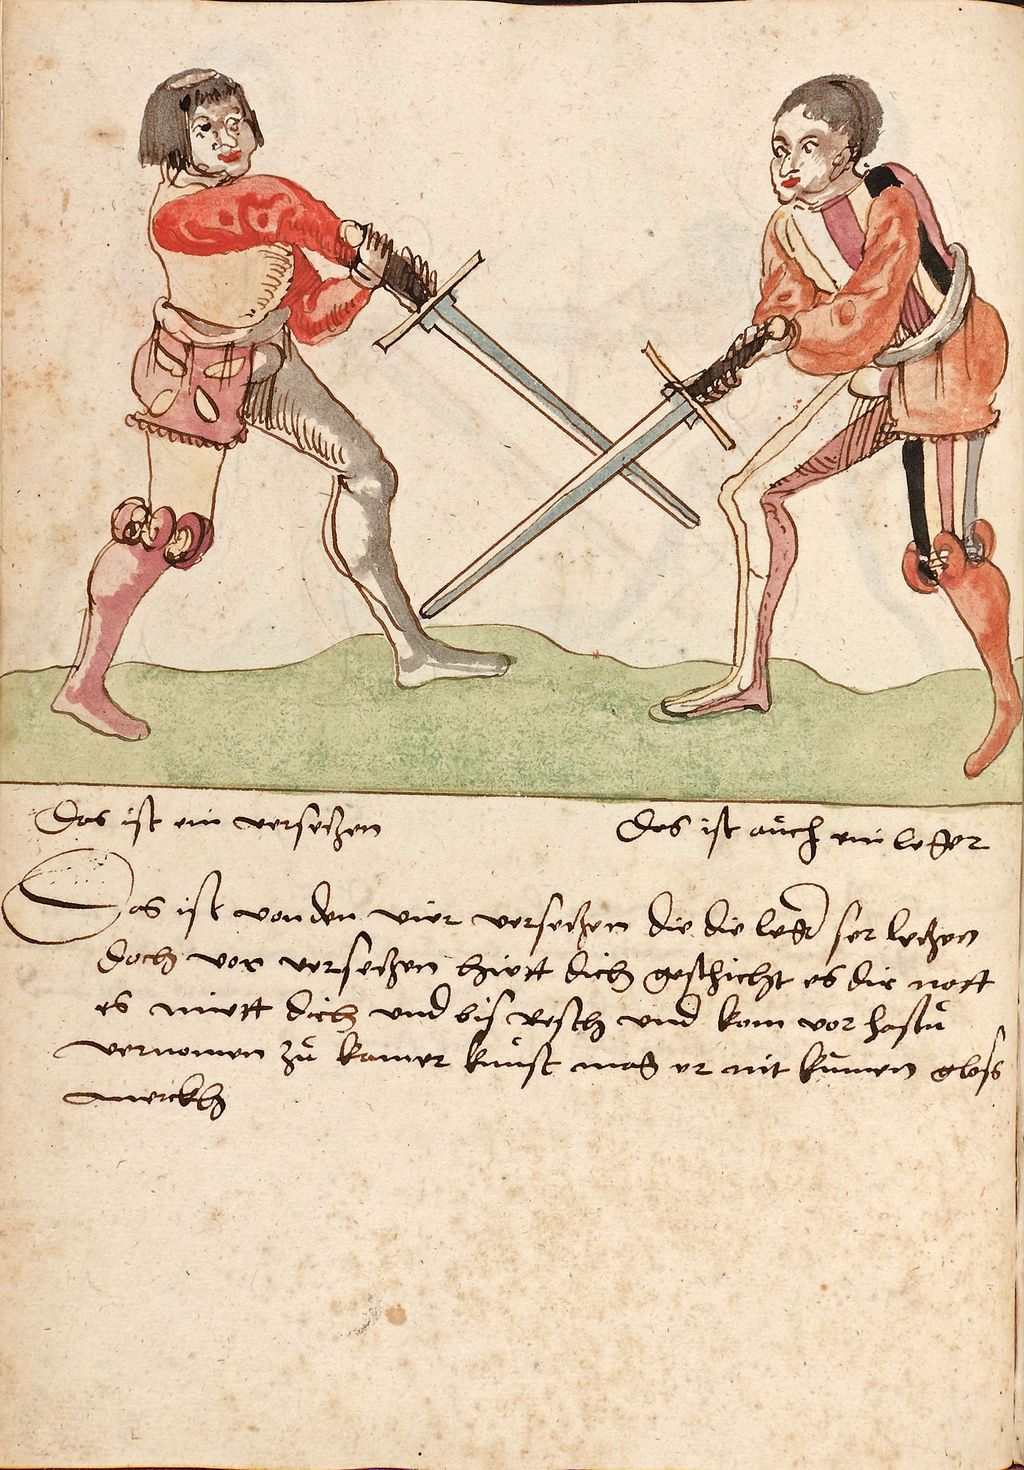 Das ist ein versetzen
Das ist auch ein leger
Das ist von den vier versetzen die die leger ser letzen
doch vor versetzen hiett dich geschicht es dir nott
es miett dich und bis resch und kom vor hastu
vernomen zu kamer kunst mag er nit kumen gloss
merckh